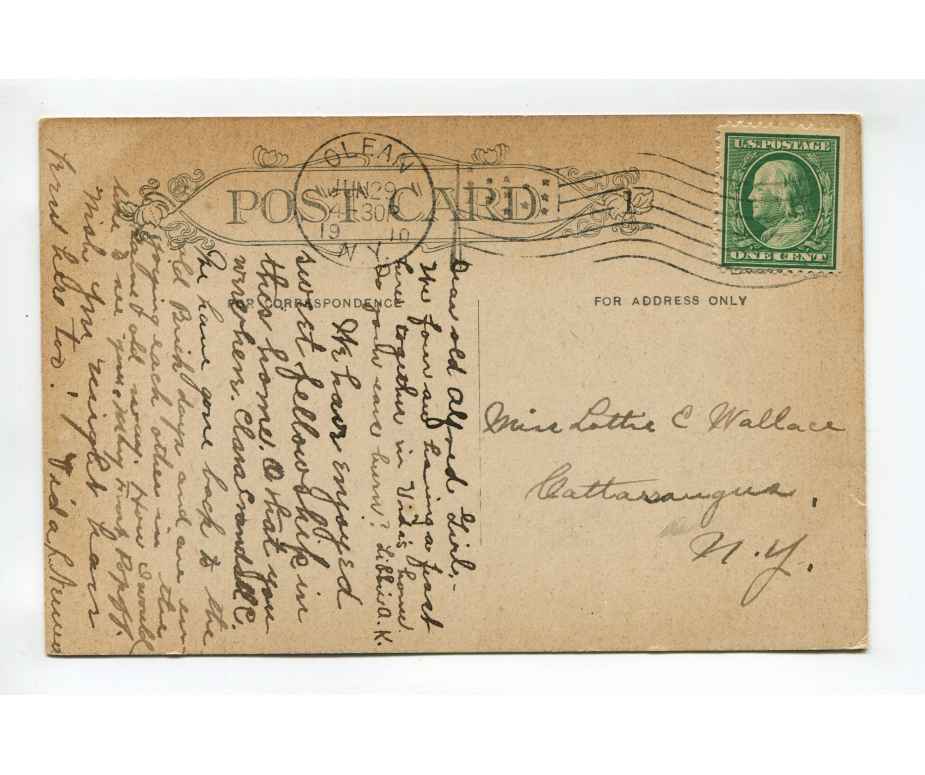 POST CARD
OLEAN
JUN 29
4-30P
19 10
N.Y.
1
U.S. POSTAGE
ONE CENT
FOR CORRESPONDENCE
FOR ADDRESS ONLY
Miss Lottie E Wallace
Cattaraugus,
N.Y.
Dear old Alfred Girl,-
We four are having a feast
here together in Vida's home.
Do your ears burn? Libbie A. K.
We have enjoyed
sweet fellowship in
this home. O that you
were here. Clara Crandall C.
We have gone back to the
old Brick days and are en-
joying each other in the
same old way. How I would
like to see you. Mary
Wish you might have
been here too. Vida